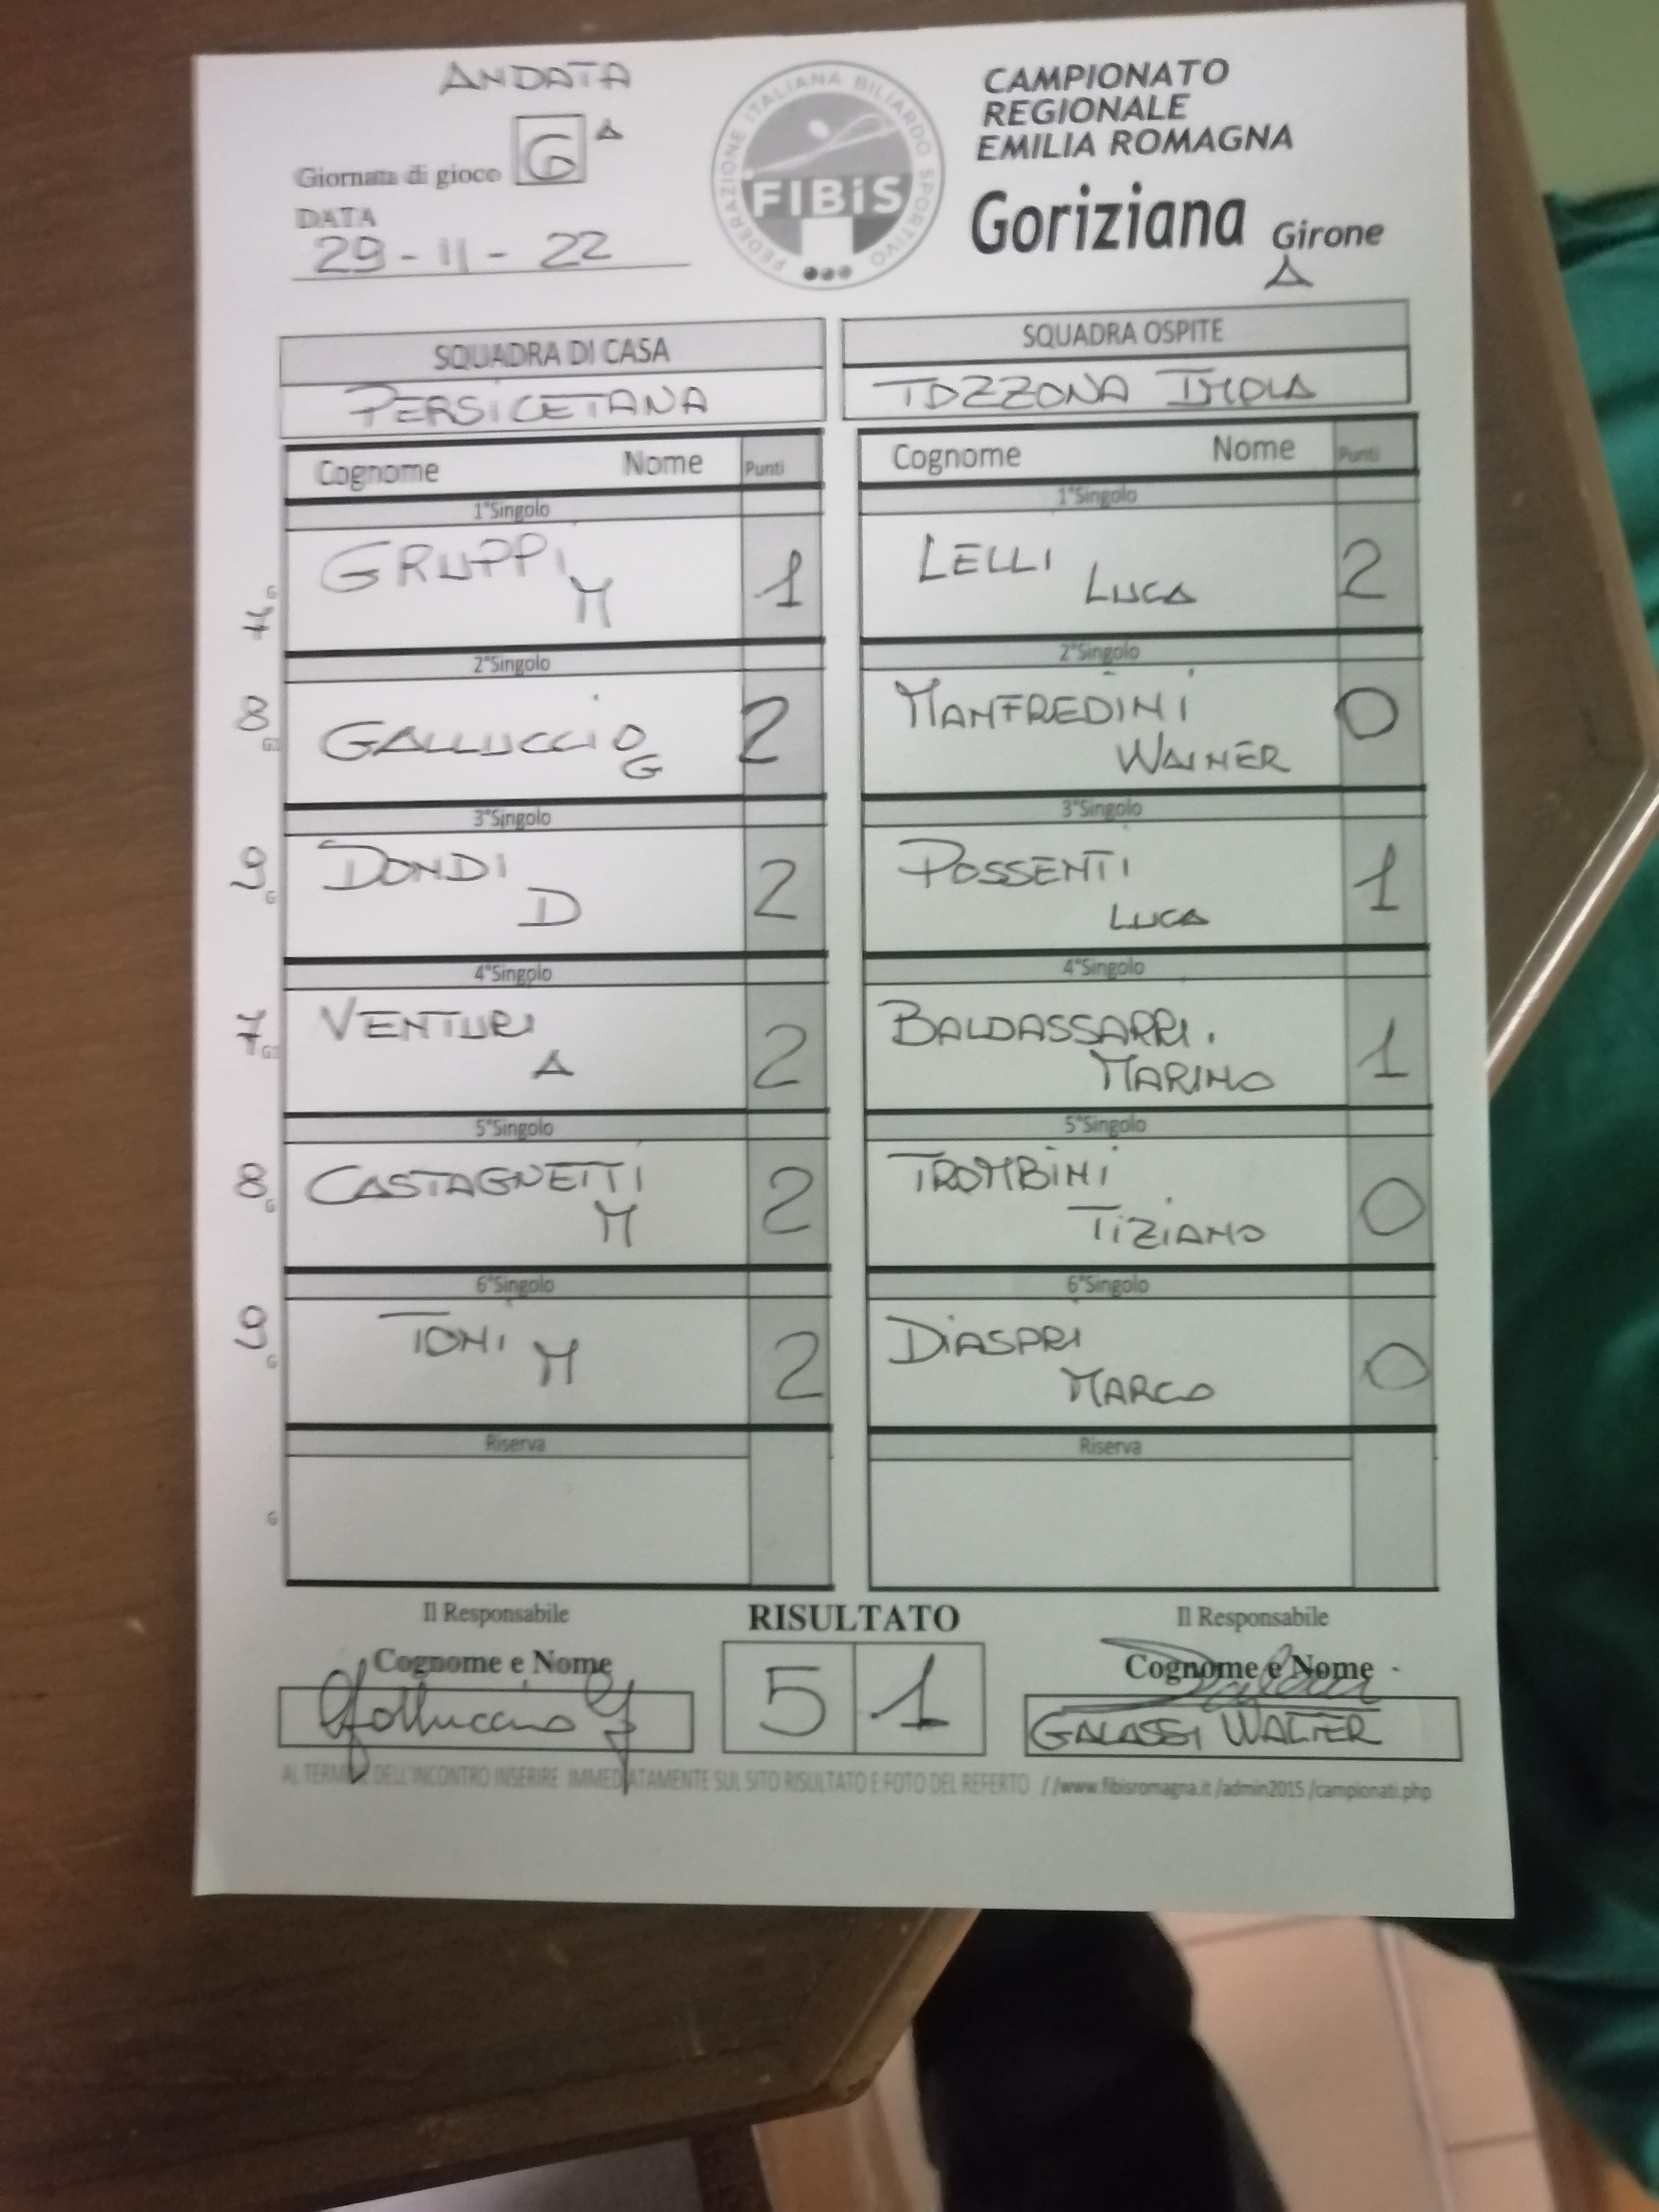 ANDATA
Giornata di gioco 6 A
DATA
29-11-22
FEDERAZIONE ITALIANA BILIARDO SPORTIVO
FIBiS
CAMPIONATO
REGIONALE
EMILIA ROMAGNA
Goriziana Girone
A
SQUADRA DI CASA
PERSICETANA
SQUADRA OSPITE
TOZZONA IMOLA
Cognome Nome Punti
Cognome Nome Punti
1°Singolo
1°Singolo
GRUPPI M 1
LELLI LUCA 2
7 G
2°Singolo
2°Singolo
8 GALLUCCIO G 2
MANFREDINI WAINER 0
3°Singolo
3°Singolo
9 G DONDI D 2
POSSENTI LUCA 1
4°Singolo
4°Singolo
7 VENTURI A 2
BALDASSARRI MARINO 1
5°Singolo
5°Singolo
8 G CASTAGNETTI M 2
TROMBINI TIZIANO 0
6°Singolo
6°Singolo
9 G TONI M 2
DIASPRI MARCO 0
Riserva
Riserva
G
Il Responsabile
RISULTATO
Il Responsabile
Cognome e Nome
Cognome e Nome
Galluccio G
5 1
GALASSI WALTER
AL TERMINE DELL'INCONTRO INSERIRE IMMEDIATAMENTE SUL SITO RISULTATO E FOTO DEL REFERTO //www.fibisromagna.it /admin2015 /campionati.php